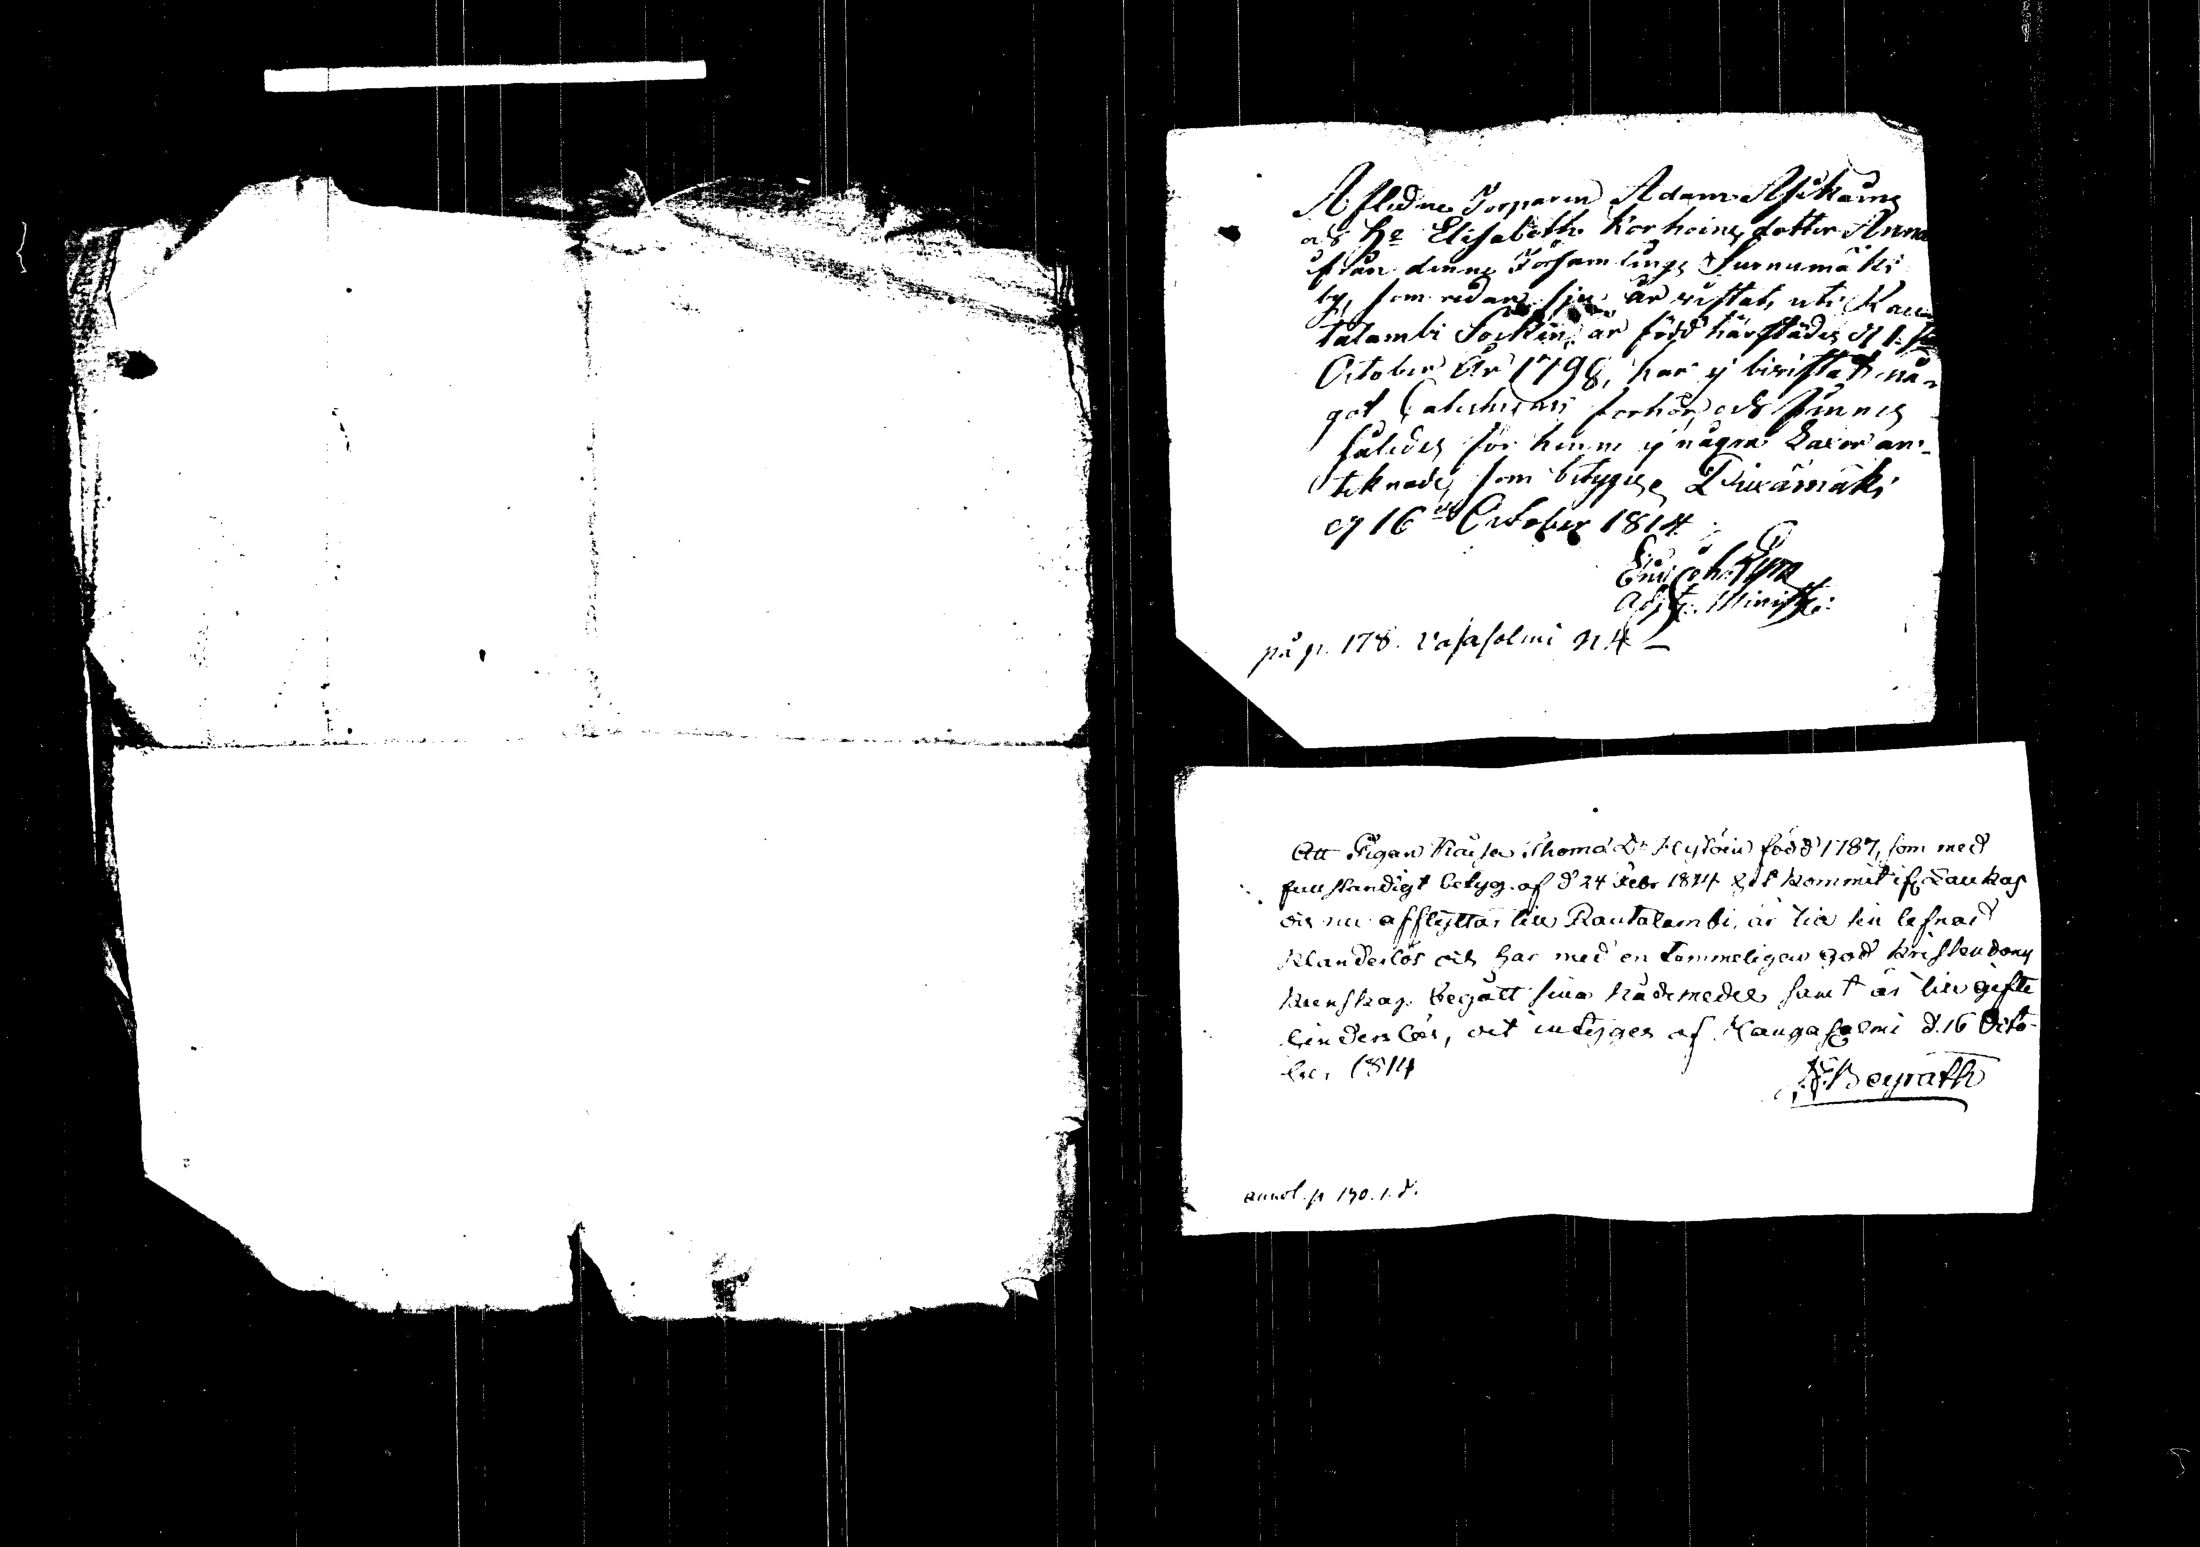 Afledne Torparen Adam Asikains
och H:s Elisabeth Korhoins dotter Anna
ifrån denne Församlings Surnumäki
by, som redan sju år vistats uti Rau
talambi Sockn, är född härstädes d 1.
October År 1798, har ej bivistat nå-
got Catechismi förhör och finnes
således för henne ej några Laxor an-
teknade, som betygas
d 16 October 1814
Adj. Minist:
på p. 178. Vasasalmi N 4
Att Pigan Kaisa Thoma Dr född 1787, som med
fullständigt betyg af d 24 Febr 1814 hit kommit ifr Laukas
och nu afflyttar till Rautalambi, är till sin lefnad
klanderlös och har med en temmeligen god Kristendoms
kunskap begått sina nådemedel samt är till gifte
hinderslös, det intyges af Kangasalmi d. 16 Octo-
ber 1814
Beyrath
annot. p 190. 1. d.